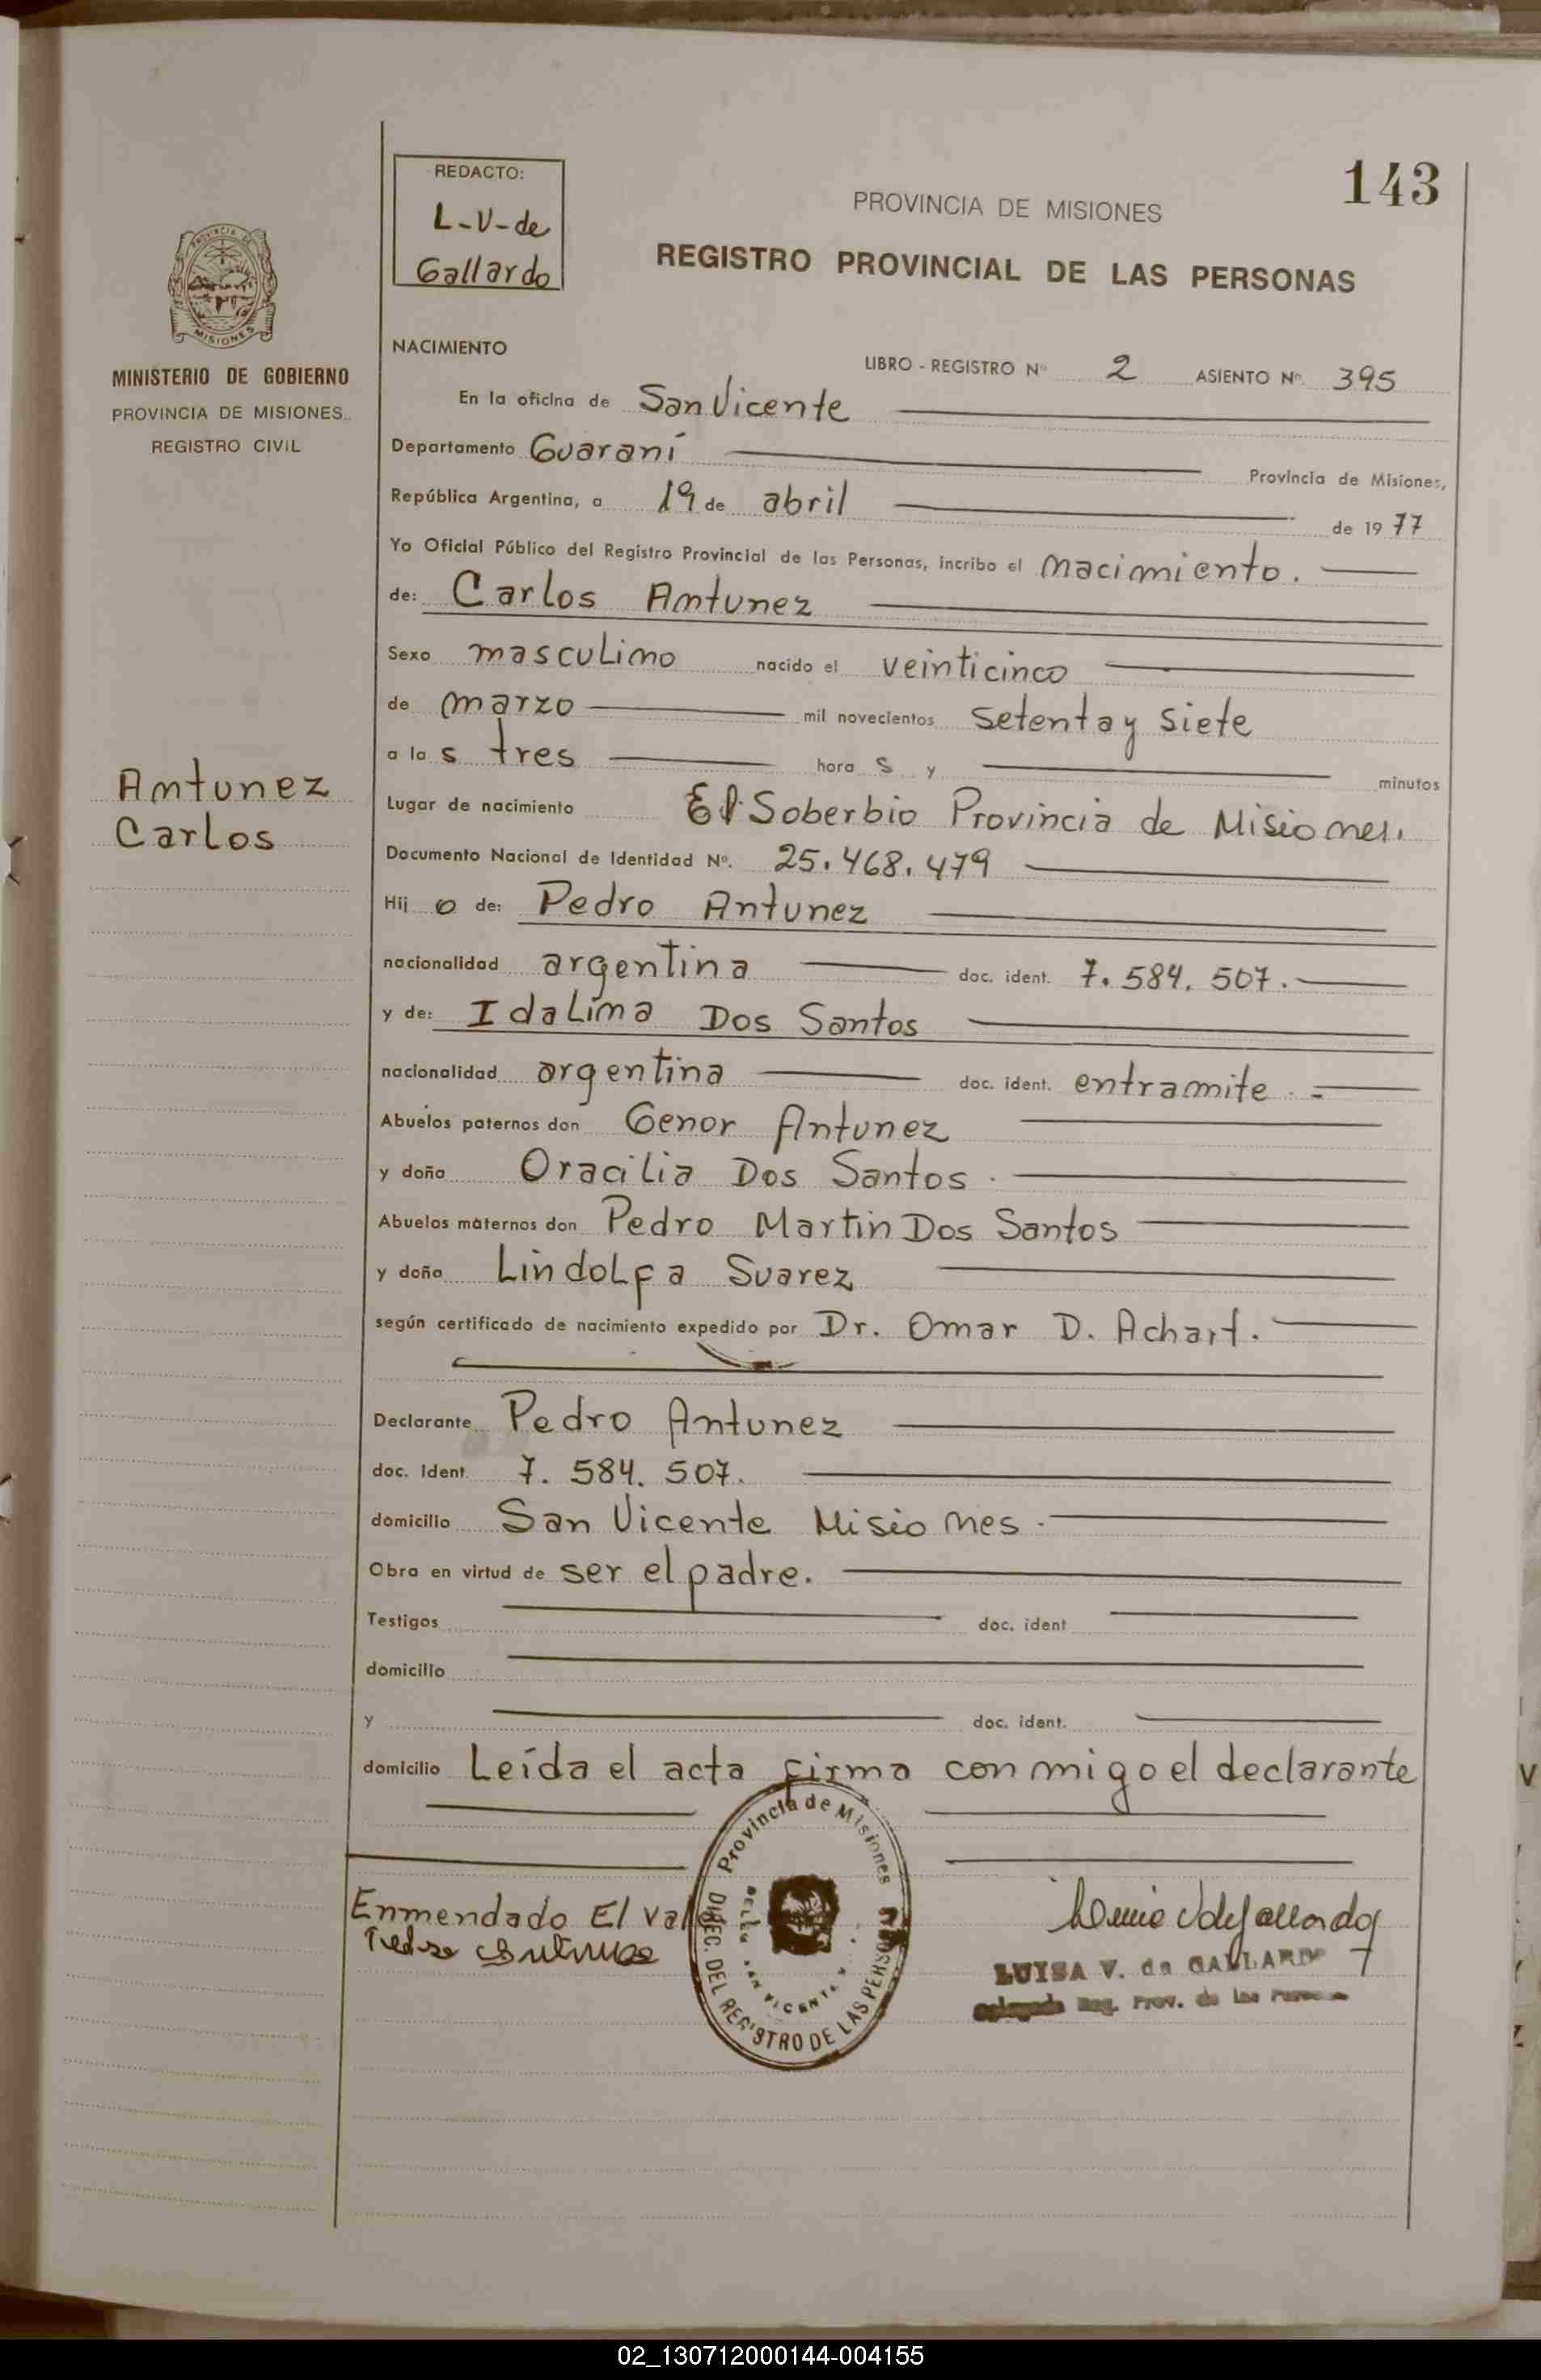 143
REDACTO:
L-V-de
Gallardo
PROVINCIA DE MISIONES
REGISTRO PROVINCIAL DE LAS PERSONAS
PROVINCIA DE MISIONES
MINISTERIO DE GOBIERNO
PROVINCIA DE MISIONES
REGISTRO CIVIL
NACIMIENTO
LIBRO - REGISTRO Nº 2 ASIENTO Nº 395
En la oficina de San Vicente
Departamento Guaraní Provincia de Misiones,
República Argentina, a 19 de abril de 1977
Yo Oficial Público del Registro Provincial de las Personas, incribo el nacimiento.
de: Carlos Antunez
Sexo masculino nacido el veinticinco
de marzo mil novecientos setenta y siete
a las tres horas y minutos
Antunez
Carlos
Lugar de nacimiento El Soberbio Provincia de Misiones.
Documento Nacional de Identidad Nº. 25.468.479
Hijo de: Pedro Antunez
nacionalidad argentina doc. ident. 7.584.507.
y de: Idalina Dos Santos
nacionalidad argentina doc. ident. entramite.
Abuelos paternos don Genor Antunez
y doña Oracilia Dos Santos.
Abuelos maternos don Pedro Martin Dos Santos
y doña Lindolfa Suarez
según certificado de nacimiento expedido por Dr. Omar D. Achart.
Declarante Pedro Antunez
doc. ident. 7.584.507.
domicilio San Vicente Misiones.
Obra en virtud de ser el padre.
Testigos doc. ident
domicilio
y doc. ident.
domicilio Leída el acta firma conmigo el declarante
Enmendado El Vale
Pedro Antunez
Provincia de Misiones
DIREC. DEL REGISTRO DE LAS PERSONAS
SAN VICENTE
LUISA V. de GALLARDO
Delegada Reg. Prov. de las Personas
02_130712000144-004155